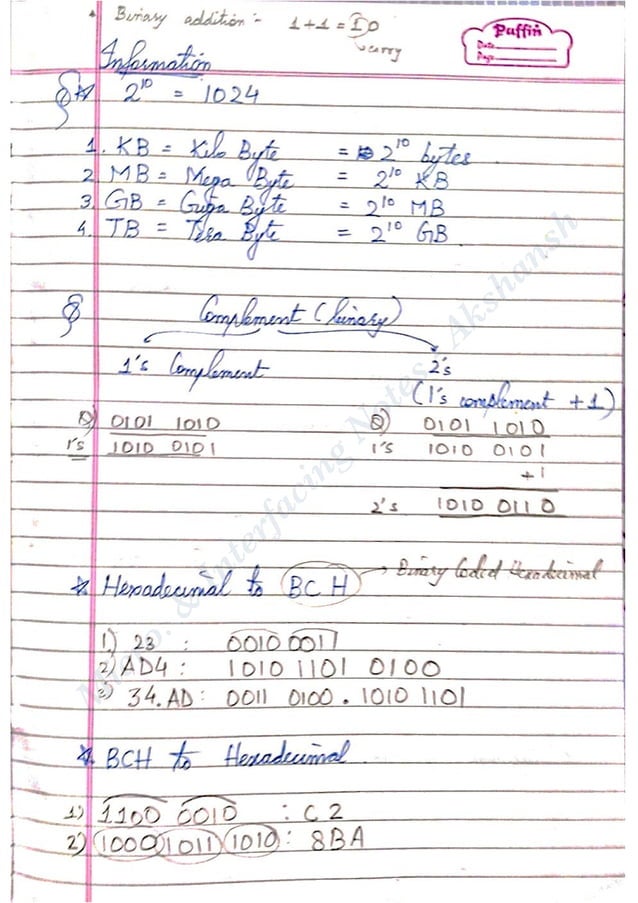 Binary addition :- 1 + 1 = 10
carry
Puffin
Date
Page
Information
2^10 = 1024
1. KB = Kilo Byte = 2^10 bytes
2. MB = Mega Byte = 2^10 KB
3. GB = Guga Byte = 2^10 MB
4. TB = Tera Byte = 2^10 GB
Complement (binary)
1's Complement 2's
(1's complement + 1)
Q) 0101 1010 Q) 0101 1010
1's 1010 0101 1's 1010 0101
+1
2's 1010 0110
* Hexadecimal to BCH → Binary Coded Hexadecimal
1) 23 : 0010 0011
2) AD4 : 1010 1101 0100
3) 34.AD : 0011 0100 . 1010 1101
* BCH to Hexadecimal
1) 1100 0010 : C2
2) 1000 1011 1010 : 8BA
Micro. & Interfacing Notes Akshansh